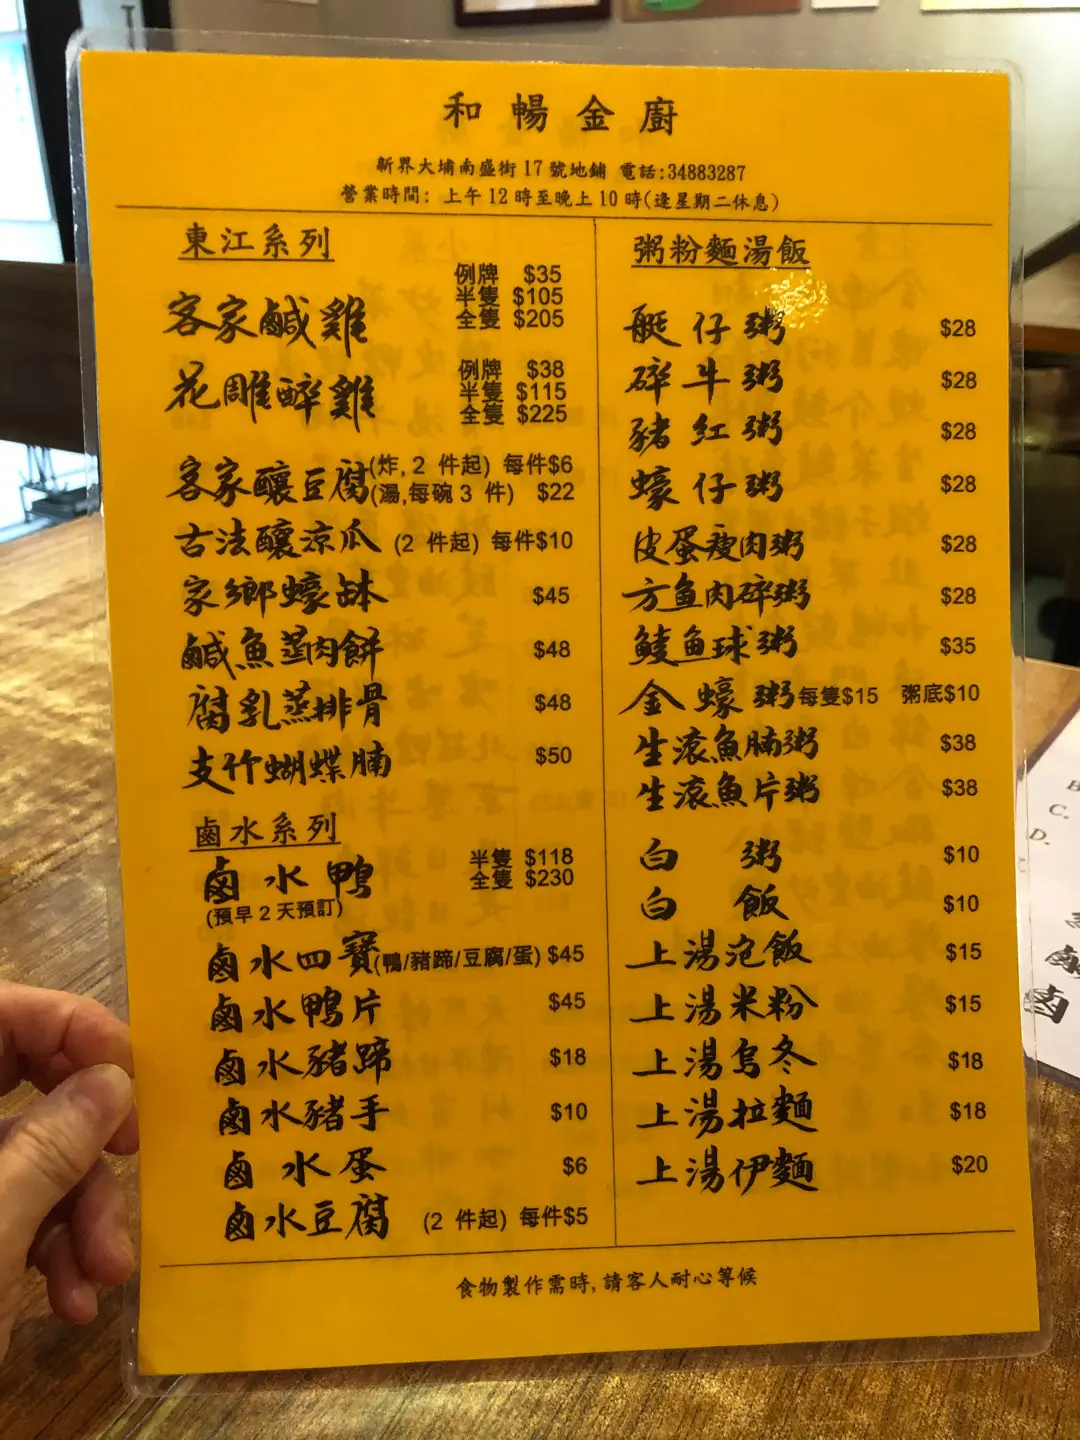 和暢金廚
新界大埔南盛街 17 號地鋪 電話:34883287
營業時間: 上午 12 時至晚上 10 時(逢星期二休息)
東江系列
客家鹹雞 例牌 $35
半隻 $105
全隻 $205
花雕醉雞 例牌 $38
半隻 $115
全隻 $225
客家釀豆腐(炸, 2 件起) 每件$6
(湯,每碗 3 件) $22
古法釀涼瓜 (2 件起) 每件$10
家鄉蠔缽 $45
鹹魚蒸肉餅 $48
腐乳蒸排骨 $48
支竹蝴蝶腩 $50
鹵水系列
鹵水鴨 半隻 $118
全隻 $230
(預早 2 天預訂)
鹵水四寶(鴨/豬蹄/豆腐/蛋) $45
鹵水鴨片 $45
鹵水豬蹄 $18
鹵水豬手 $10
鹵水蛋 $6
鹵水豆腐 (2 件起) 每件$5
粥粉麵湯飯
艇仔粥 $28
碎牛粥 $28
豬紅粥 $28
蠔仔粥 $28
皮蛋瘦肉粥 $28
方魚肉碎粥 $28
鯪魚球粥 $35
金蠔粥 每隻$15 粥底$10
生滾魚腩粥 $38
生滾魚片粥 $38
白粥 $10
白飯 $10
上湯泡飯 $15
上湯米粉 $15
上湯烏冬 $18
上湯拉麵 $18
上湯伊麵 $20
食物製作需時, 請客人耐心等候
C.
D.
鹵